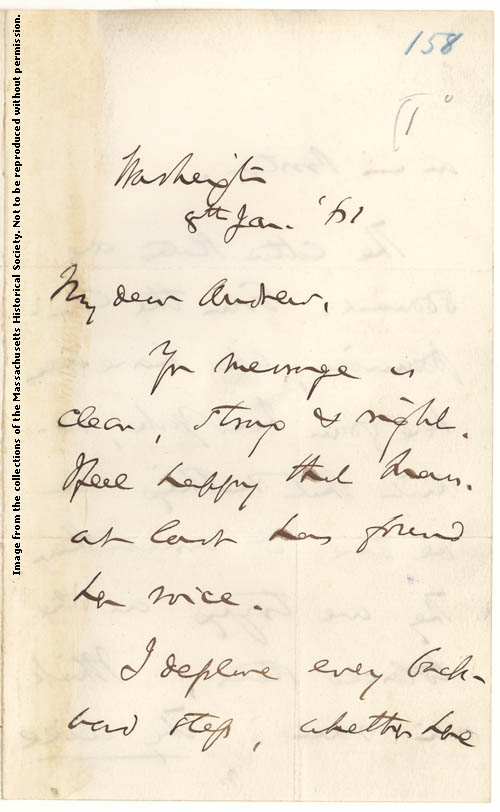 158
Image from the collections of the Massachusetts Historical Society. Not to be reproduced without permission.
Washington
8th Jan. '61
My dear Andrew,
Yr message is
clear, strong & right.
I feel happy that Mass.
at last has found
her voice.
I deplore every back-
ward step, whether here